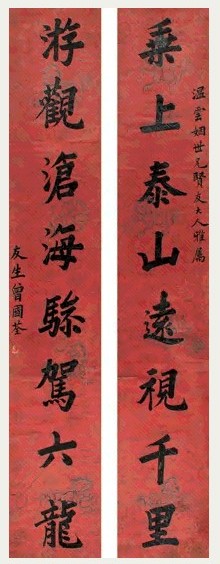 溫雲姻世兄賢友大人雅屬
乘上泰山遠視千里
游觀滄海驂駕六龍
友生曾國荃